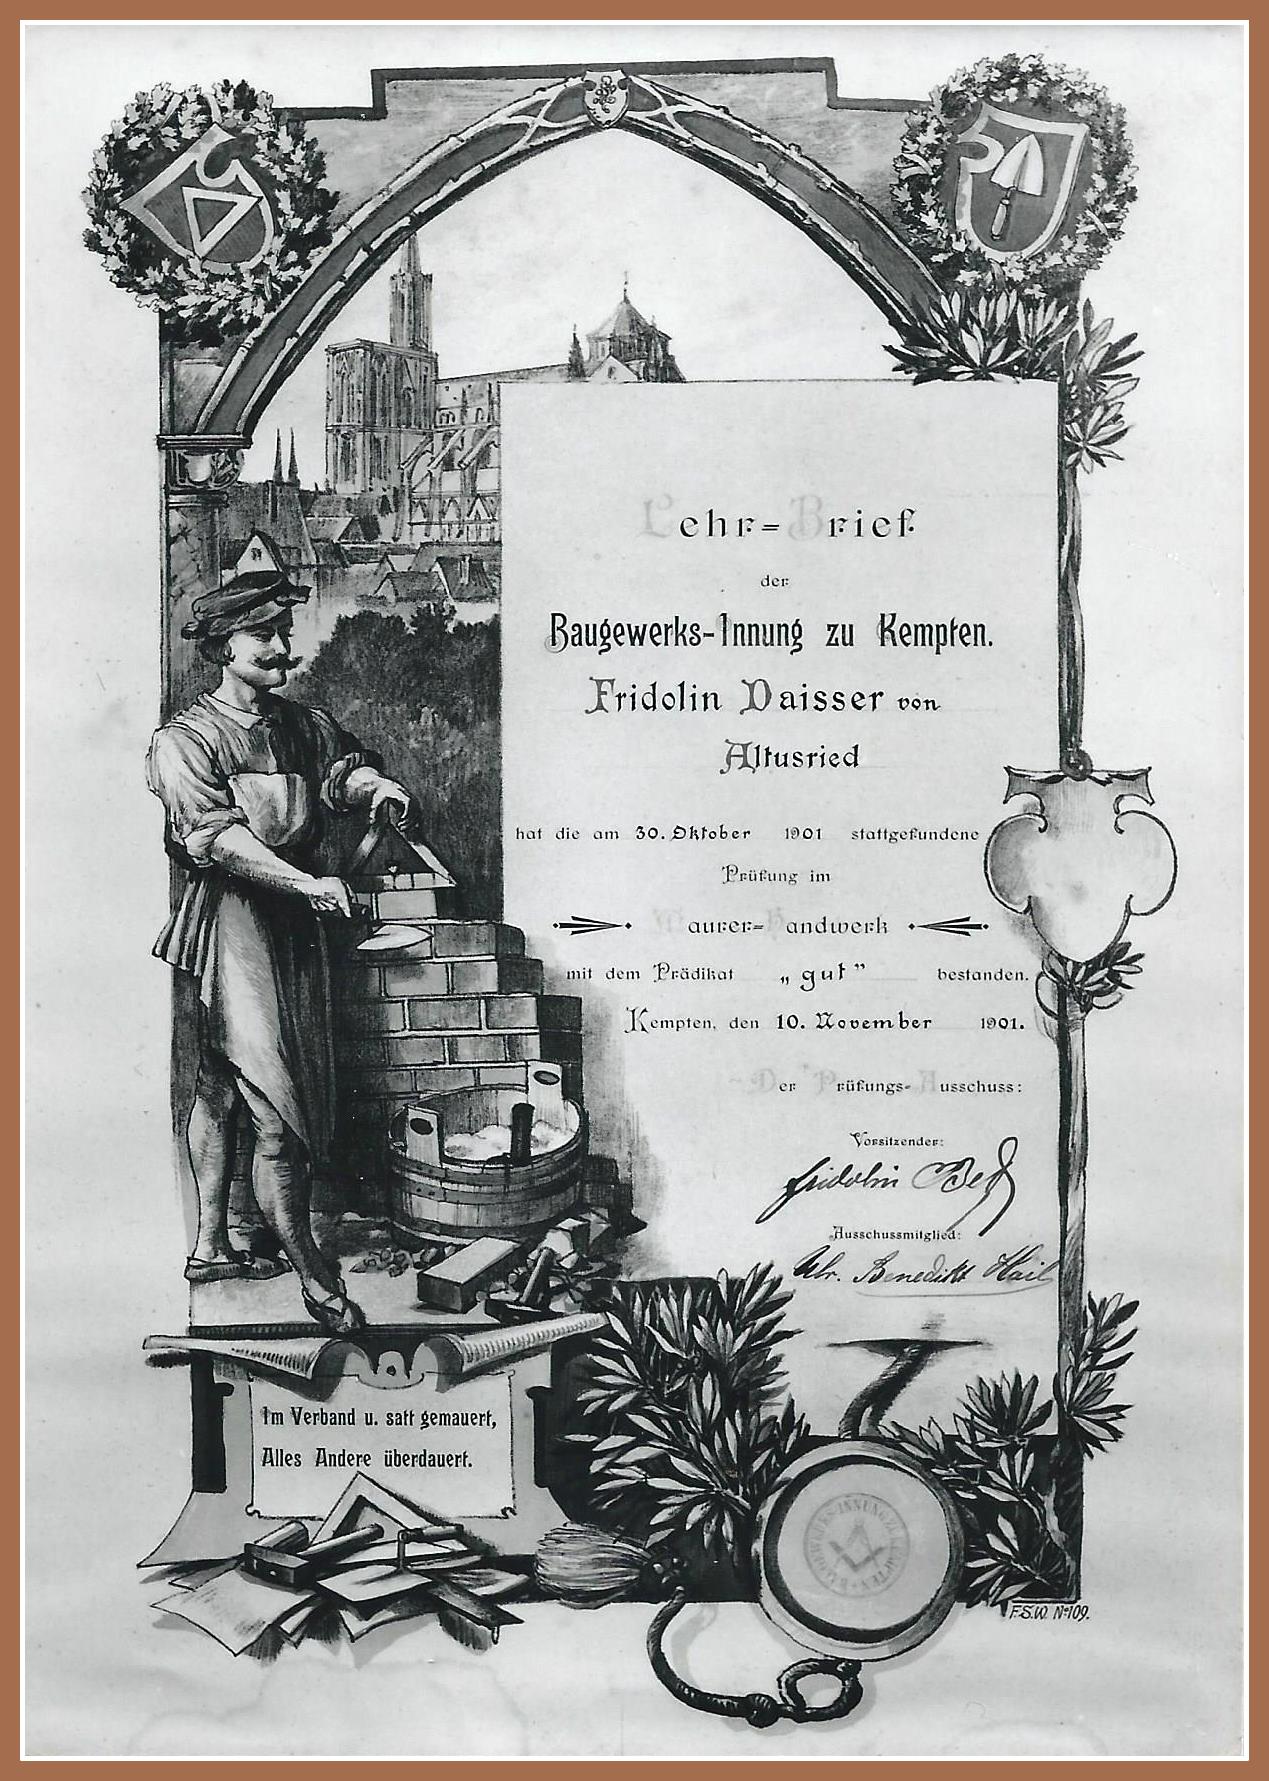 Lehr=Brief
der
Baugewerks-Innung zu Kempten.
Fridolin Daisser von
Altusried
hat die am 30. Oktober 1901 stattgefundene
Prüfung im
Maurer=Handwerk
mit dem Prädikat „gut” bestanden.
Kempten, den 10. November 1901.
Der Prüfungs-Ausschuss:
Vorsitzender:
Fridolin
Ausschussmitglied:
Benedikt Hail
Im Verband u. satt gemauert,
Alles Andere überdauert.
BAUGEWERKS-INNUNG ZU KEMPTEN
F.S.W. No 109.